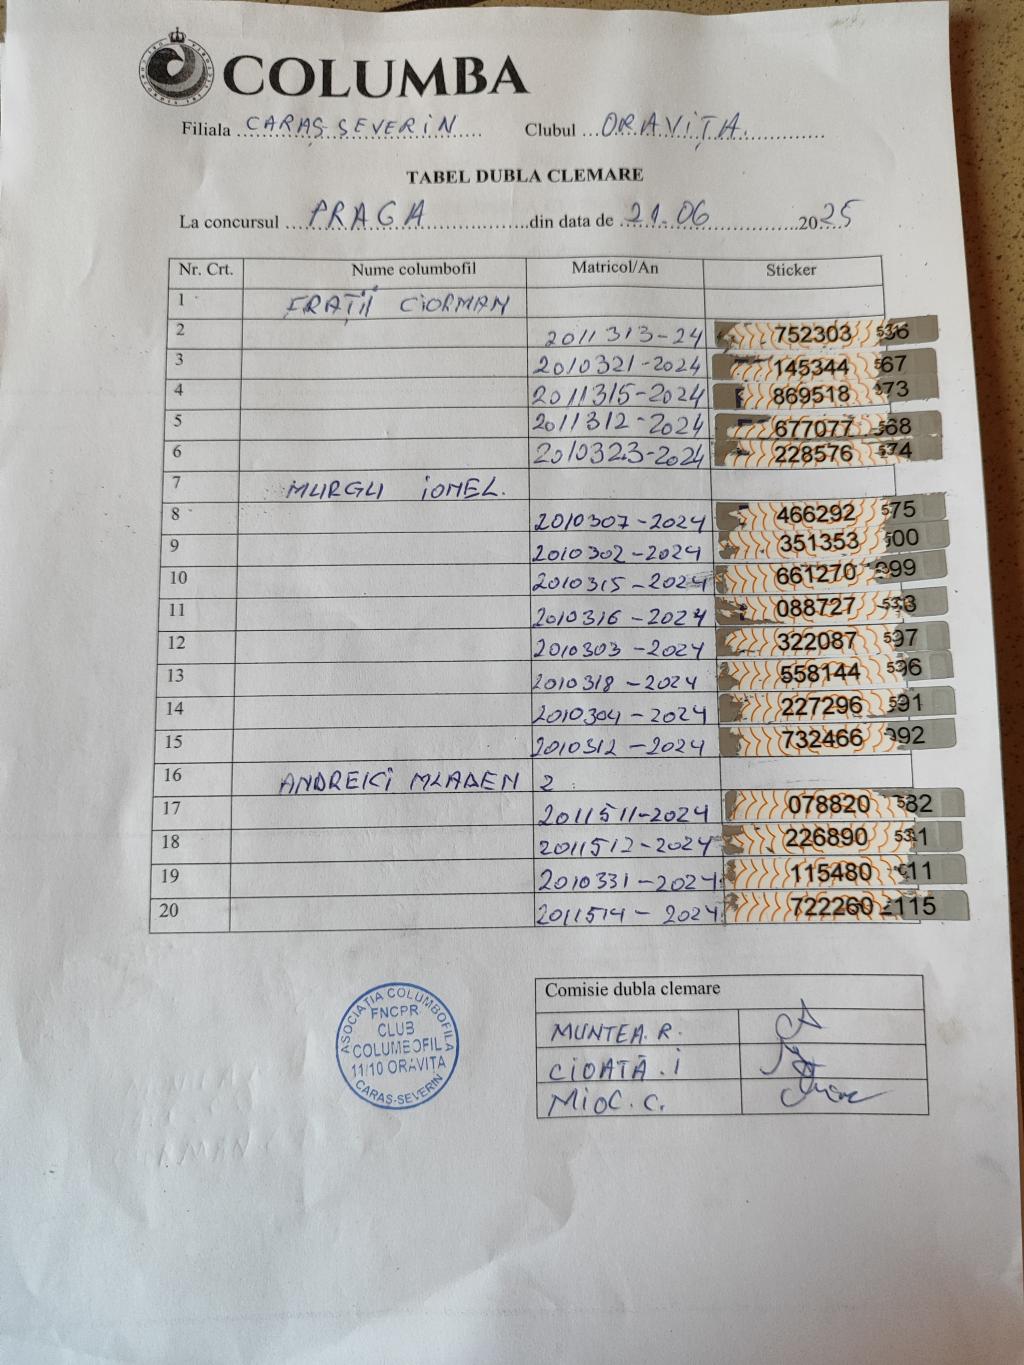 COLUMBA
Filiala CARAȘ-SEVERIN Clubul ORAVIȚA.
TABEL DUBLA CLEMARE
La concursul PRAGA din data de 21.06 2025
Nr. Crt. Nume columbofil Matricol/An Sticker
1 FRAȚII CIORMAN
2 2011313-24 752303
3 2010321-2024 145344
4 2011315-2024 869518
5 2011312-2024 677077
6 2010323-2024 228576
7 MURGU IONEL.
8 2010307-2024 466292
9 2010302-2024 351353
10 2010315-2024 661270
11 2010316-2024 088727
12 2010303-2024 322087
13 2010318-2024 558144
14 2010304-2024 227296
15 2010312-2024 732466
16 ANDREKI MLADEN 2
17 2011511-2024 078820
18 2011512-2024 226890
19 2010331-2024 115480
20 2011514-2024 722260
ASOCIATIA COLUMBOFILA
FNCPR
CLUB
COLUMBOFIL
11/10 ORAVIȚA
CARAS-SEVERIN
Comisie dubla clemare
MUNTEA.R.
CIOATĂ.I
MIOC.C.